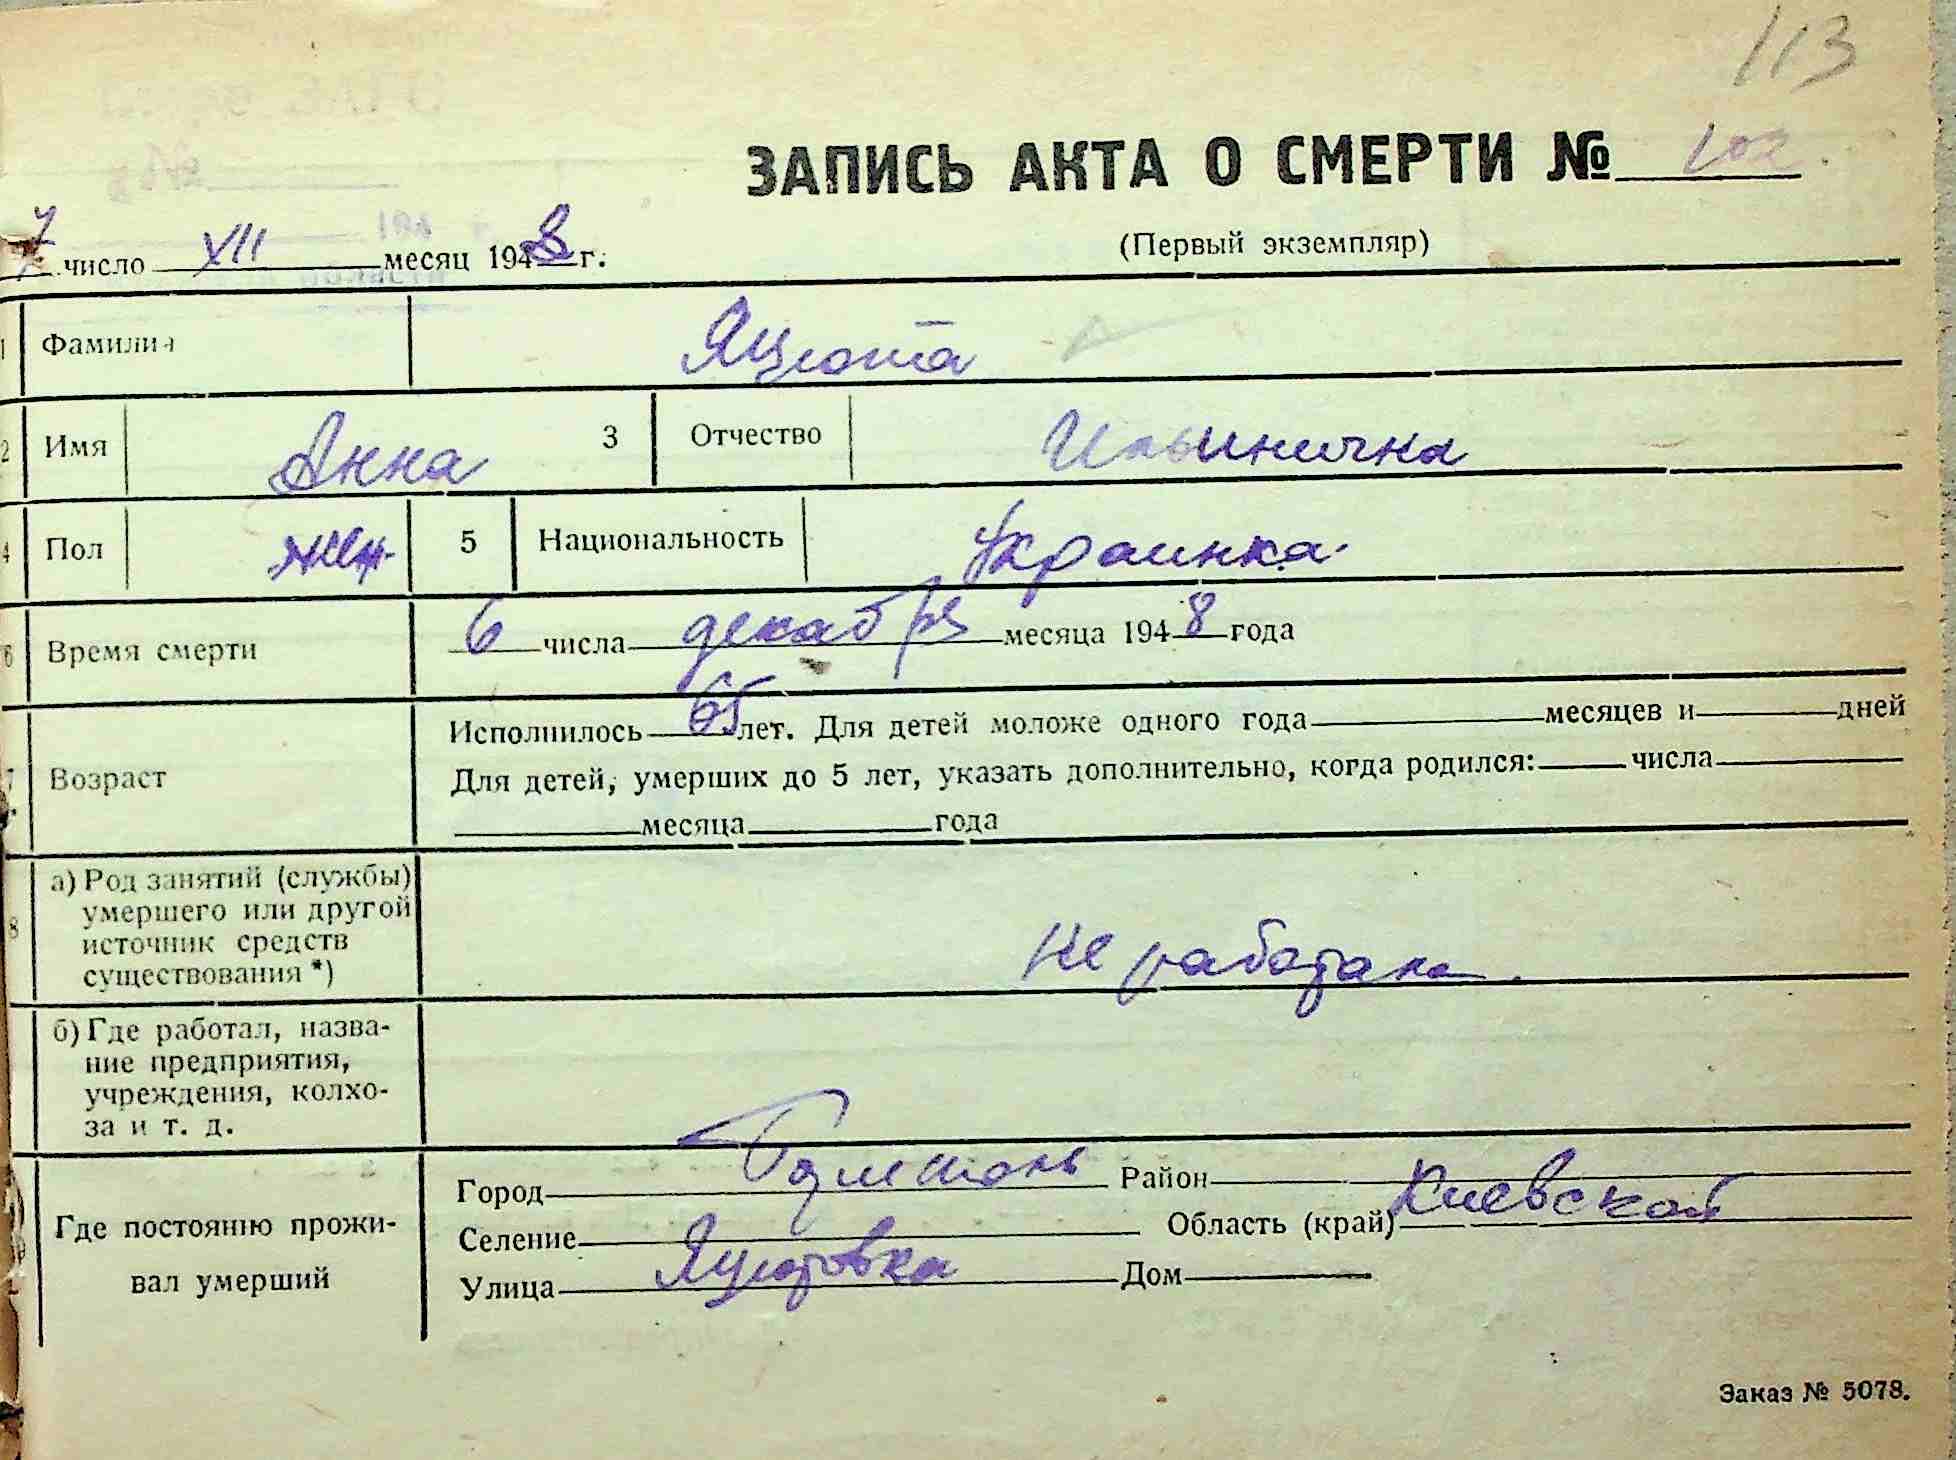 113
ЗАПИСЬ АКТА О СМЕРТИ № 102
7 число XII месяц 1948 г.
(Первый экземпляр)
1 Фамилия Яцюта
2 Имя Анна 3 Отчество Ильинична
4 Пол жен. 5 Национальность Украинка
6 Время смерти 6 числа декабря месяца 1948 года
7 Возраст Исполнилось 65 лет. Для детей моложе одного года месяцев и дней
Для детей, умерших до 5 лет, указать дополнительно, когда родился: числа
месяца года
8 а) Род занятий (службы)
умершего или другой
источник средств
существования *)
не работала
б) Где работал, назва-
ние предприятия,
учреждения, колхо-
за и т. д.
Где постоянно прожи-
вал умерший
Город Район
Селение Область (край) Киевской
Улица Яцютовка Дом
Заказ № 5078.